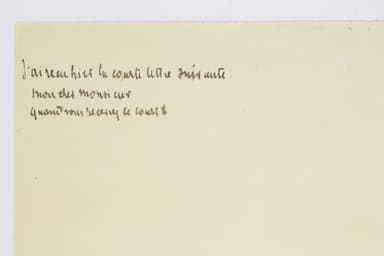 J'ai reçu hier la courte lettre suivante:
mon cher monsieur
Quand vous recevrez ce